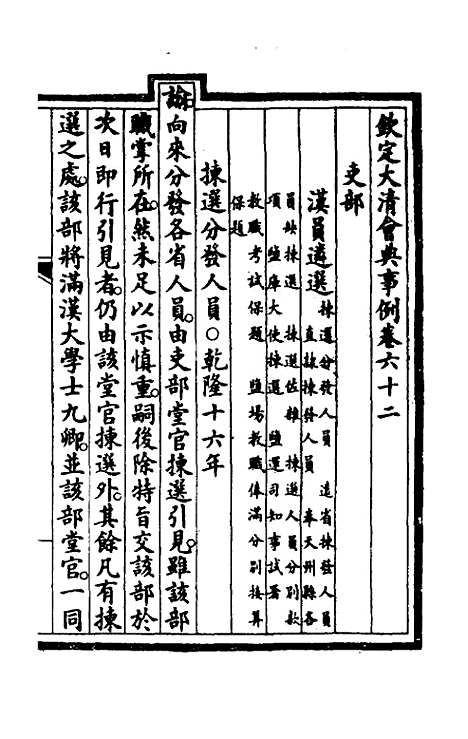 欽定大清會典事例卷六十二
吏部
漢員遴選
揀選分發人員　遠省揀發人員
直隸揀發人員　奉天州縣各
員缺揀選　揀選佐雜　揀選人員分別款
項　鹽庫大使揀選　鹽運司知事試署
教職考試保題　鹽場教職俸滿分別接算
保題
揀選分發人員○乾隆十六年
諭向來分發各省人員。由吏部堂官揀選引見。雖該部
職掌所在。然未足以示慎重。嗣後除特旨交該部於
次日即行引見者。仍由該堂官揀選外。其餘凡有揀
選之處。該部將滿漢大學士九卿。並該部堂官。一同